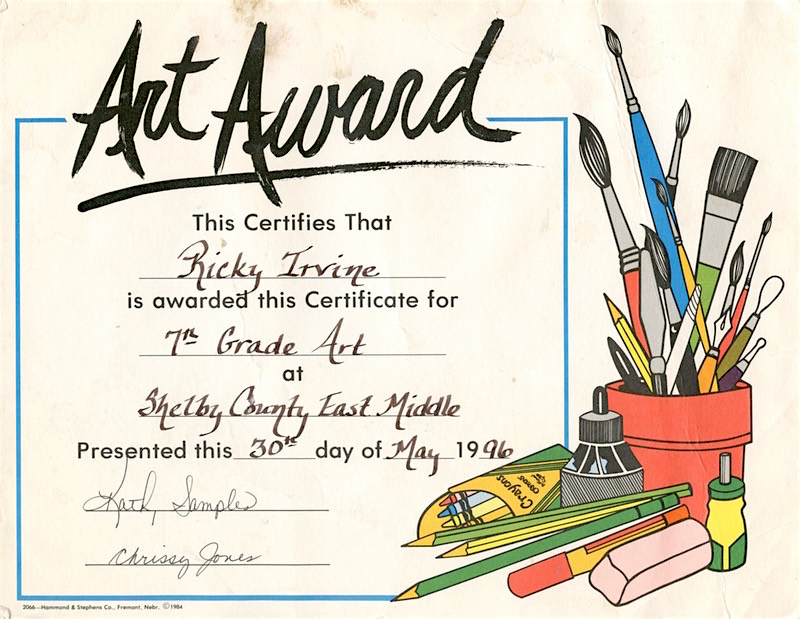 Art Award
This Certifies That
Ricky Irvine
is awarded this Certificate for
7th Grade Art
at
Shelby County East Middle
Presented this 30th day of May 1996
Kathy Samples
Chrissy Jones
Crayons
2066—Hammond & Stephens Co., Fremont, Nebr. ©1984